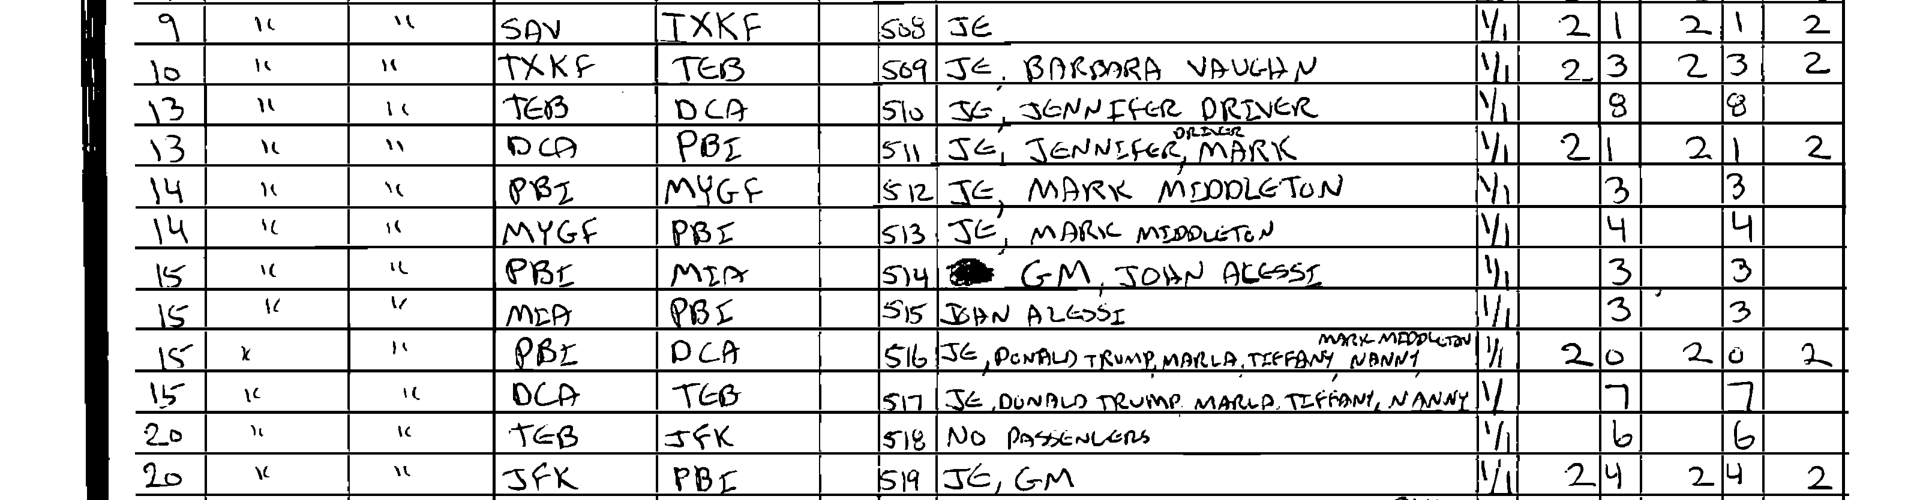 9 " " SAV TXKF 508 JE 1/1 2 1 2 1 2
10 " " TXKF TEB 509 JE, BARBARA VAUGHN 1/1 2 3 2 3 2
13 " " TEB DCA 510 JE, JENNIFER DRIVER 1/1 8 8
13 " " DCA PBI 511 JE, JENNIFER DRIVER, MARK 1/1 2 1 2 1 2
14 " " PBI MYGF 512 JE, MARK MIDDLETON 1/1 3 3
14 " " MYGF PBI 513 JE, MARK MIDDLETON 1/1 4 4
15 " " PBI MIA 514 GM, JOHN ALESSI 1/1 3 3
15 " " MIA PBI 515 JOHN ALESSI 1/1 3 3
15 " " PBI DCA 516 JE, DONALD TRUMP, MARLA, TIFFANY, NANNY MARK MIDDLETON 1/1 2 0 2 0 2
15 " " DCA TEB 517 JE, DONALD TRUMP, MARLA, TIFFANY, NANNY 1/ 7 7
20 " " TEB JFK 518 NO PASSENGERS 1/1 6 6
20 " " JFK PBI 519 JE, GM 1/1 2 4 2 4 2